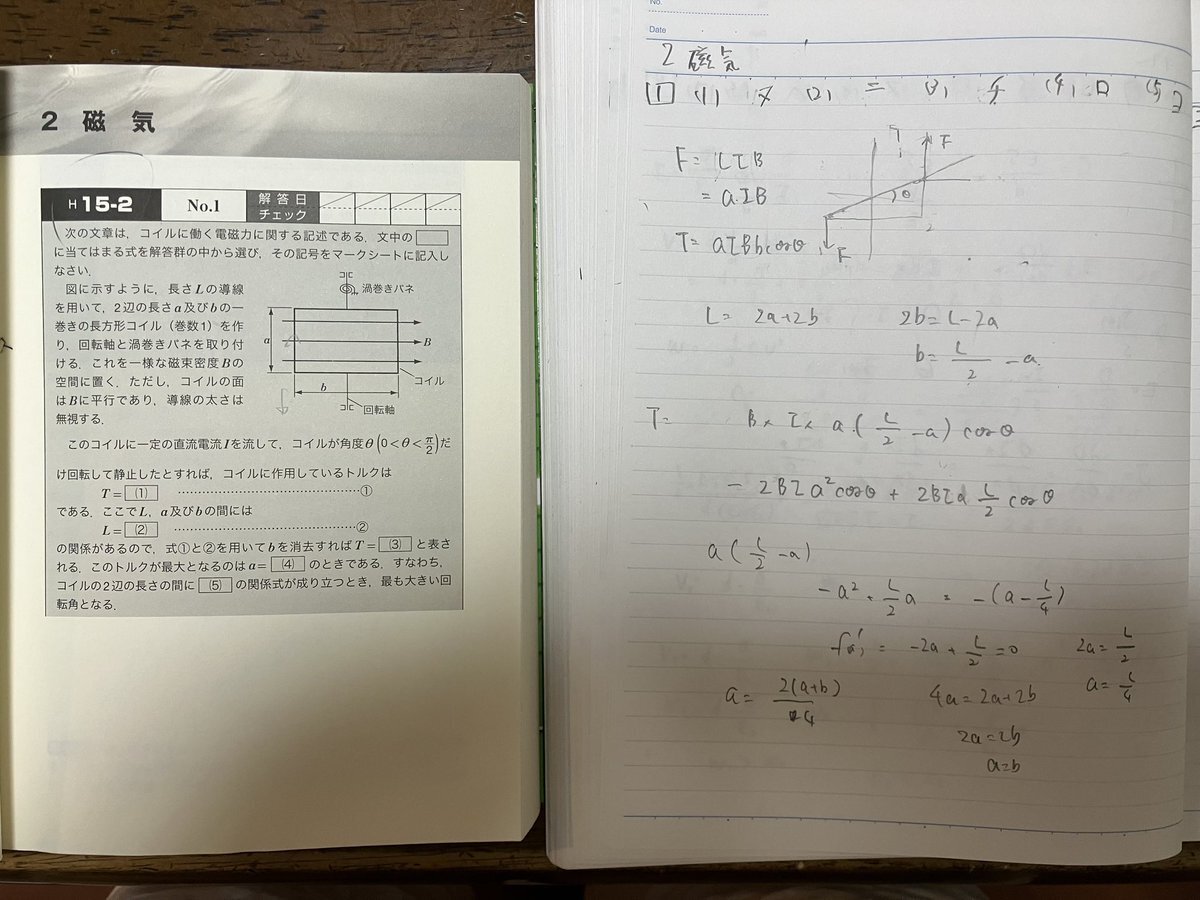 2 磁 気
H15-2
No.1
解答日
チェック
次の文章は，コイルに働く電磁力に関する記述である．文中の
に当てはまる式を解答群の中から選び，その記号をマークシートに記入し
なさい．
図に示すように，長さLの導線
を用いて，2辺の長さa及びbの一
巻きの長方形コイル（巻数1）を作
り，回転軸と渦巻きバネを取り付
ける．これを一様な磁束密度Bの
空間に置く．ただし，コイルの面
はBに平行であり，導線の太さは
無視する．
渦巻きバネ
a
B
b
コイル
回転軸
このコイルに一定の直流電流Iを流して，コイルが角度θ(0<θ<π/2)だ
け回転して静止したとすれば，コイルに作用しているトルクは
T= (1) ……………………………………①
である．ここでL，a及びbの間には
L= (2) ……………………………………②
の関係があるので，式①と②を用いてbを消去すればT= (3) と表さ
れる．このトルクが最大となるのはa= (4) のときである．すなわち，
コイルの2辺の長さの間に (5) の関係式が成り立つとき，最も大きい回
転角となる．
No.
Date
2 磁気
1 (1) ヌ (2) ニ (3) チ (4) ロ (5)
F= LIB
= aIB
T= aIBbcosθ
F
θ
F
L= 2a+2b 2b=L-2a
b= L/2 -a
T= B× I× a (L/2 -a) cosθ
- 2BIa²cosθ + 2BIa L/2 cosθ
a (L/2 -a)
-a² + L/2 a = -(a- L/4)
f(a)' = -2a + L/2 =0 2a= L/2
a= 2(a+b)/4 4a=2a+2b a= L/4
2a=2b
a=b